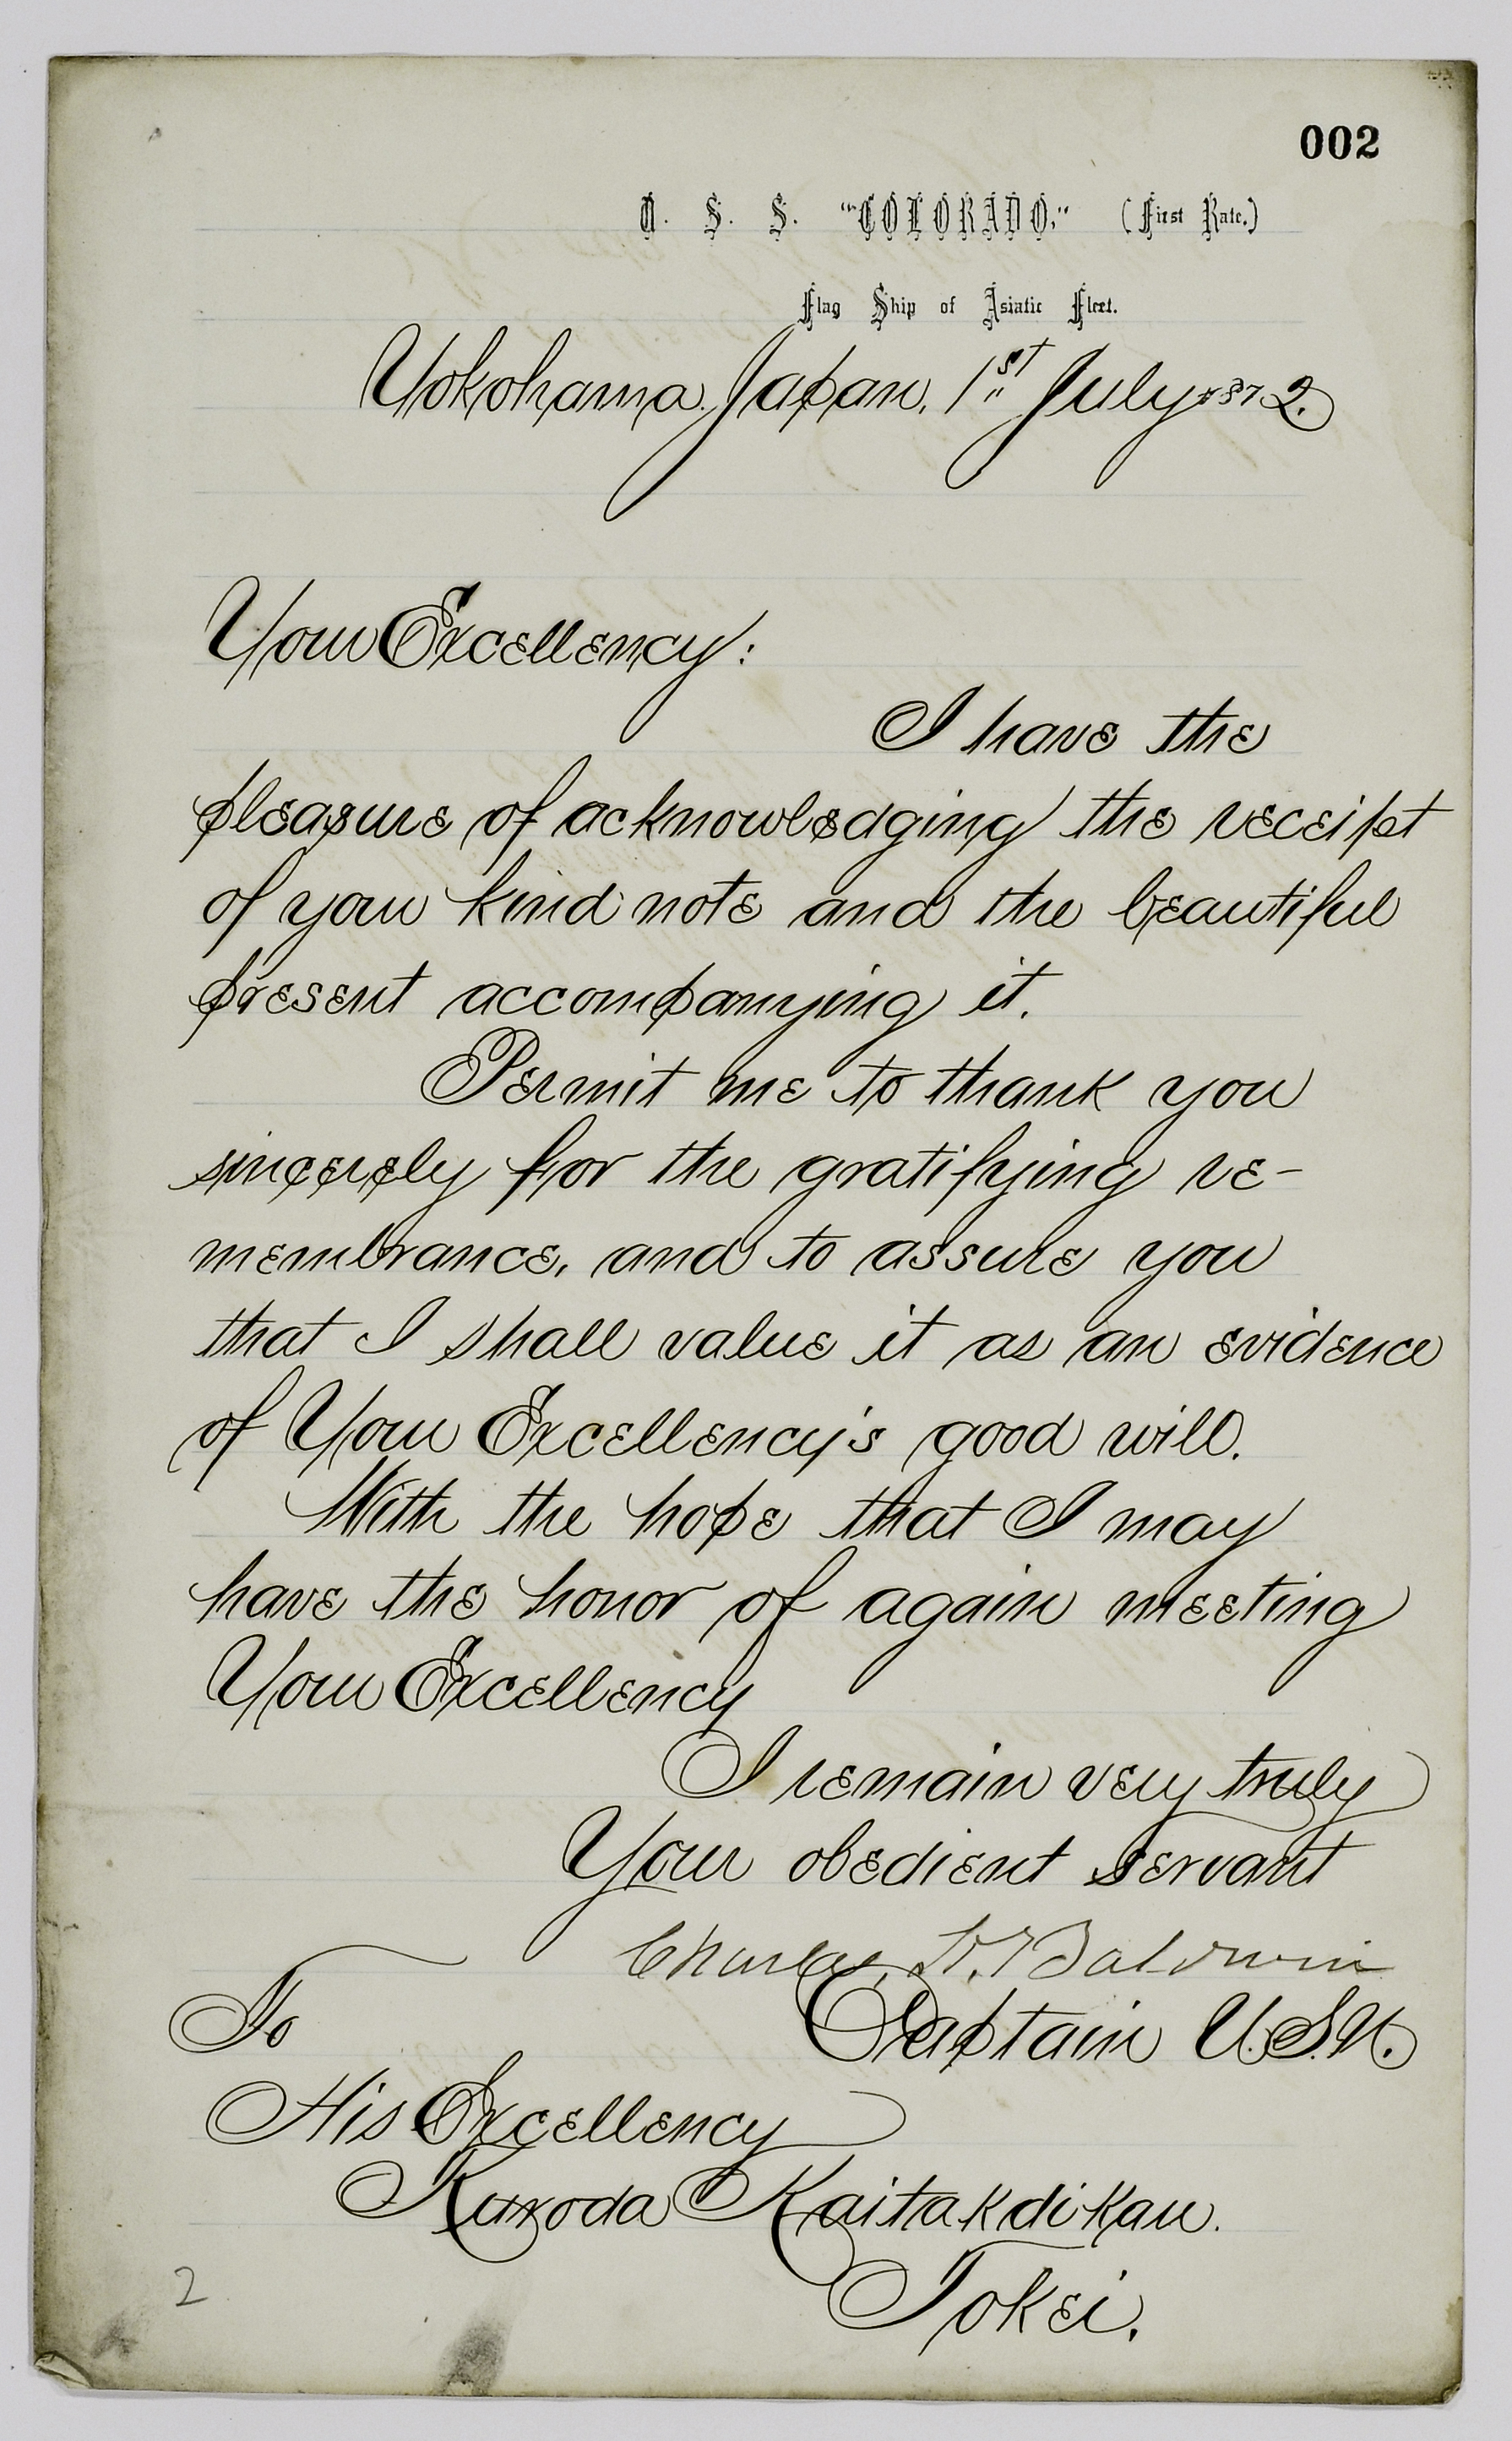 002
U. S. S. "COLORADO," (First Rate.)
Flag Ship of Asiatic Fleet.
Yokohama. Japan. 1st July 1872.
Your Excellency:
I have the
pleasure of acknowledging the receipt
of your kind note and the beautiful
present accompanying it.
Permit me to thank you
sincerely for the gratifying re-
membrance, and to assure you
that I shall value it as an evidence
of Your Excellency's good will.
With the hope that I may
have the honor of again meeting
Your Excellency
I remain very truly
Your obedient servant
Charles H. Baldwin
Captain U.S.N.
To
His Excellency
Kuroda Kaitakdikau.
Tokei.
2